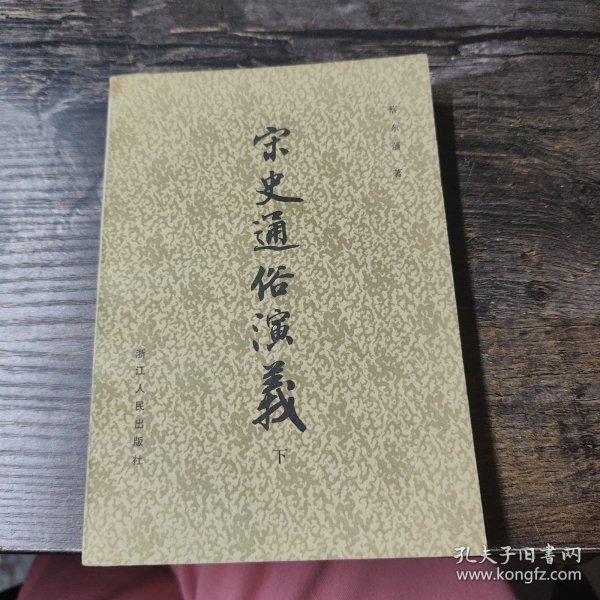 宋史通俗演義
下
蔡东藩 著
浙江人民出版社
孔夫子旧書网
www.kongfz.com